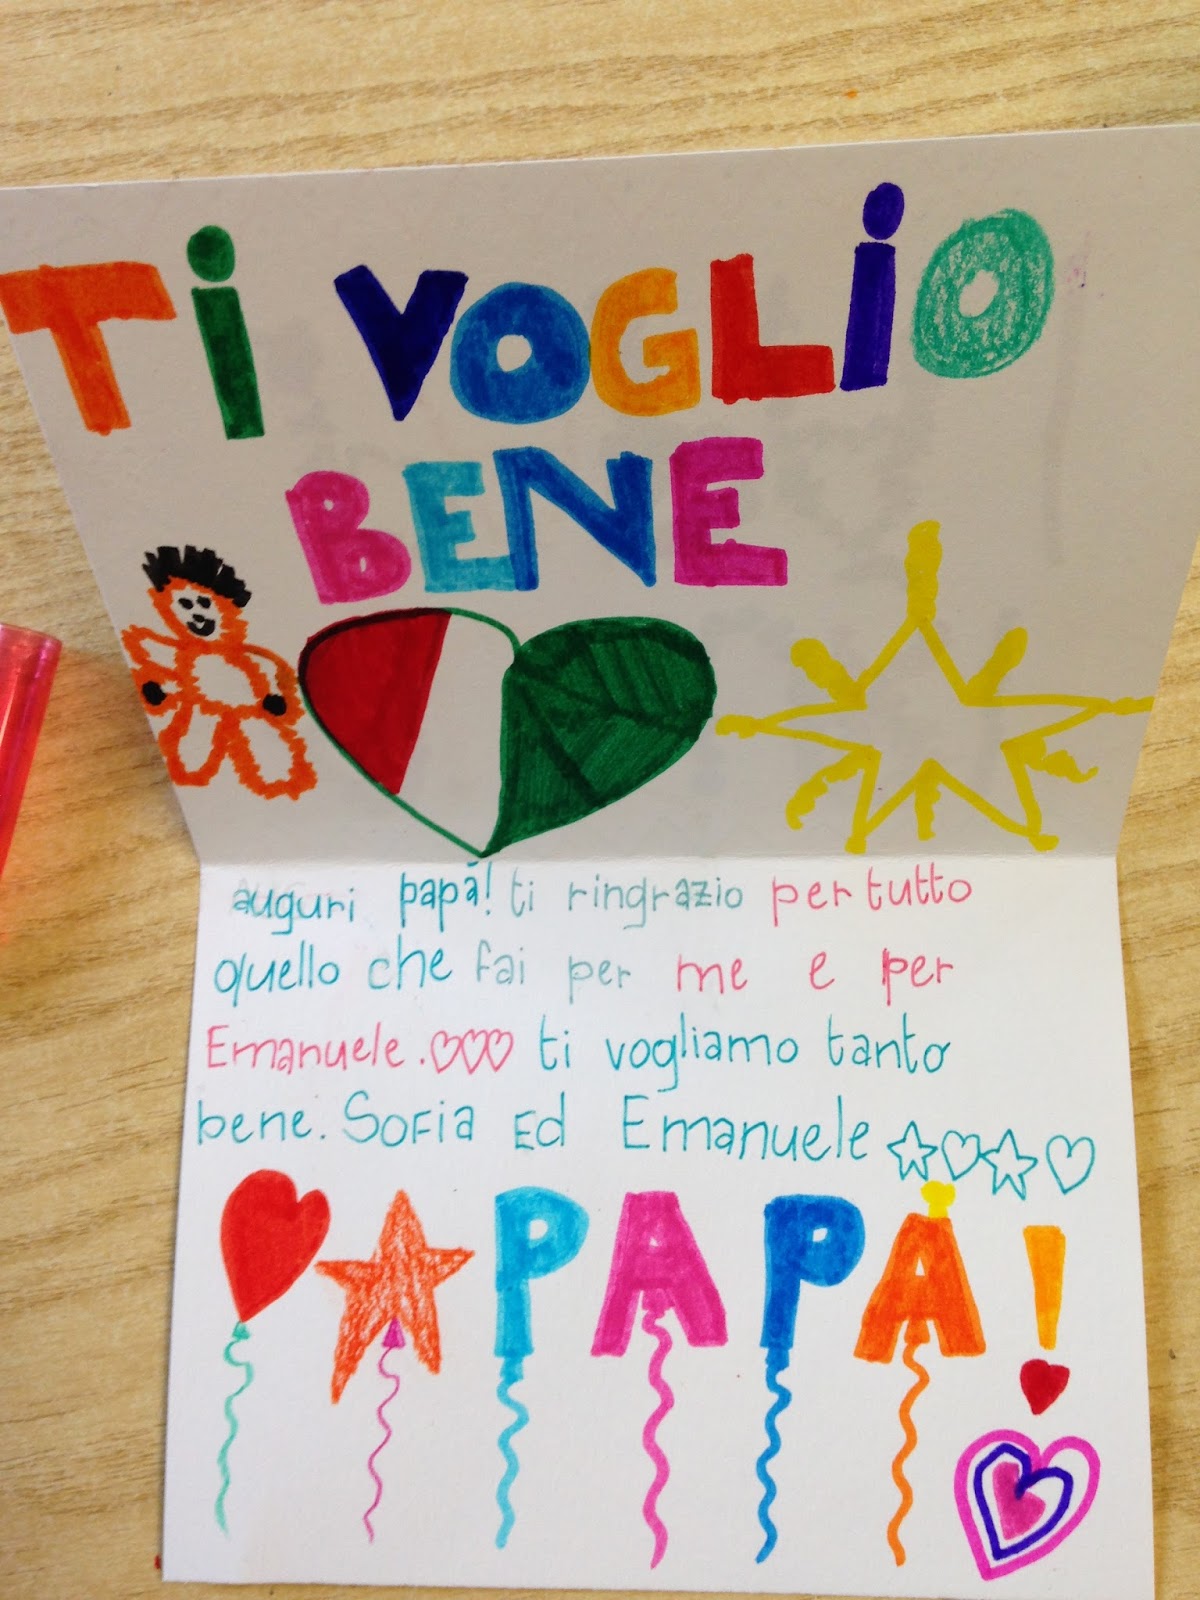 Ti VOGLiO
BENE
auguri papà! ti ringrazio per tutto
quello che fai per me e per
Emanuele.♡♡♡ ti vogliamo tanto
bene. Sofia Ed Emanuele ☆♡☆♡
PAPÀ!